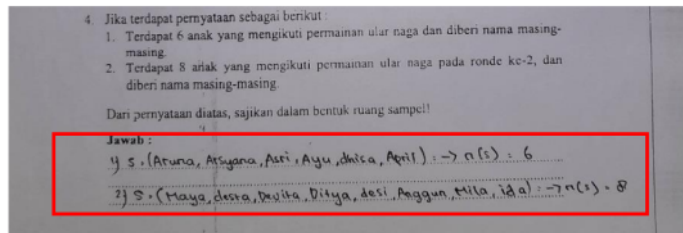 4. Jika terdapat pernyataan sebagai berikut :
1. Terdapat 6 anak yang mengikuti permainan ular naga dan diberi nama masing-
masing.
2. Terdapat 8 anak yang mengikuti permainan ular naga pada ronde ke-2, dan
diberi nama masing-masing.
Dari pernyataan diatas, sajikan dalam bentuk ruang sampel!
Jawab :
1) S = (Aruna, Arsyana, Asri, Ayu, dhisa, April) = -> n(s) = 6
2) S = (Maya, desta, Devita, Ditya, desi, Anggun, Mila, ida) = -> n(s) = 8